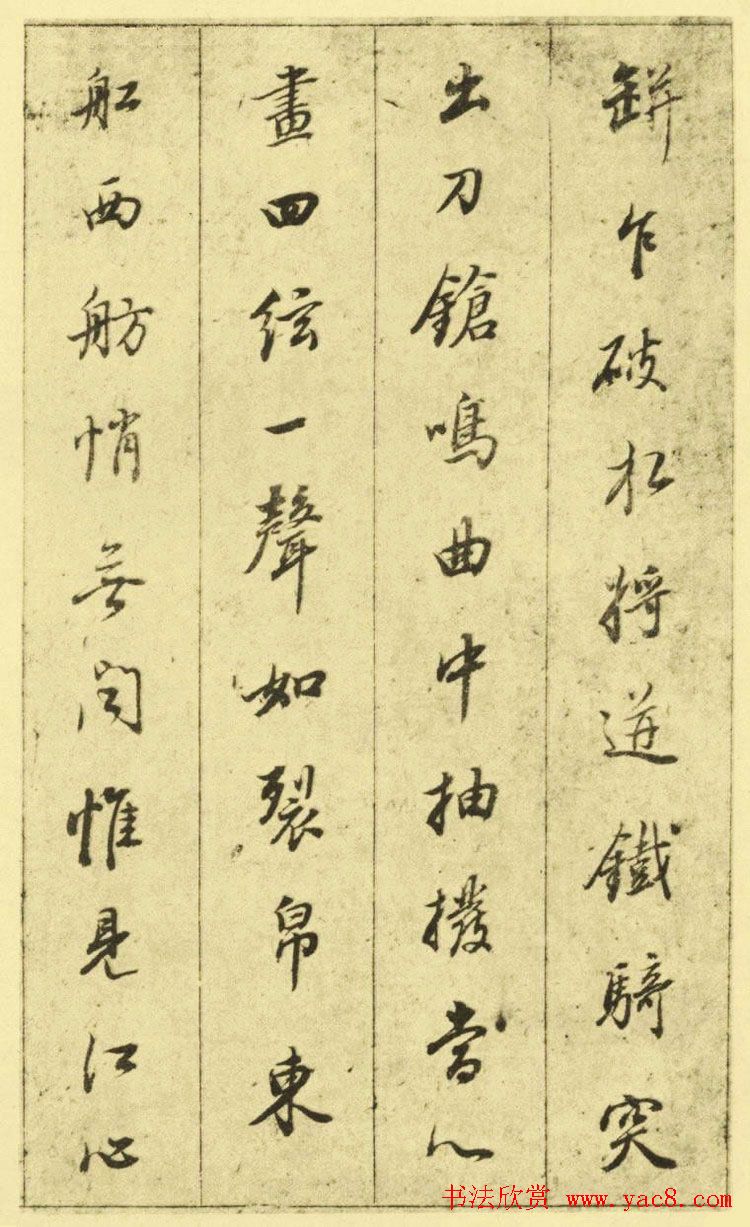 缾乍破水漿迸鐵騎突
出刀鎗鳴曲中抽撥當心
畫四絃一聲如裂帛東
舡西舫悄無問惟見江心
书法欣赏 www.yac8.com